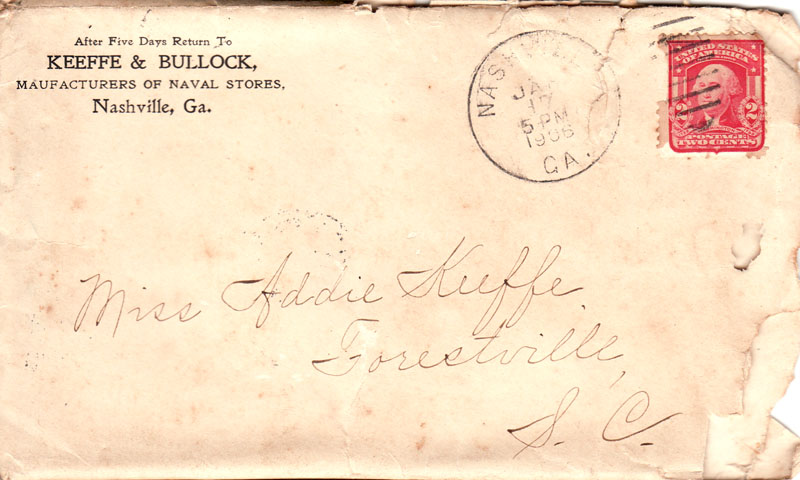 After Five Days Return To
KEEFFE & BULLOCK,
MAUFACTURERS OF NAVAL STORES,
Nashville, Ga.
NASHVILLE
JAN
17
5 PM
1906
GA.
UNITED STATES
OF AMERICA
2 2
POSTAGE
TWO CENTS
Miss Addie Keeffe
Forestville,
S. C.